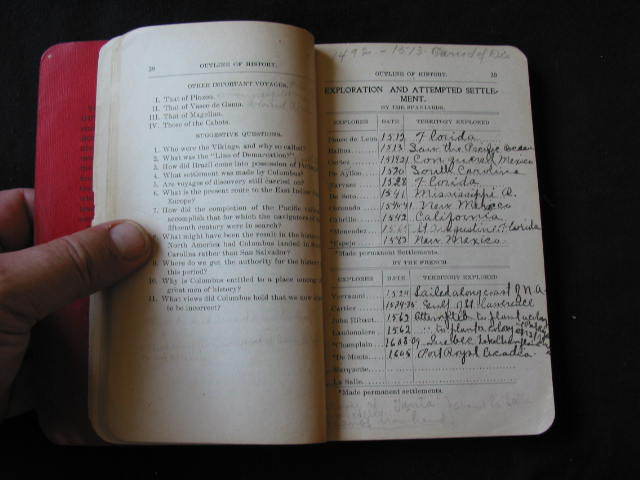 38 OUTLINE OF HISTORY.
OTHER IMPORTANT VOYAGES.
I. That of Pinzon.
II. That of Vasco de Gama.
III. That of Magellan.
IV. Those of the Cabots.
SUGGESTIVE QUESTIONS.
1. Who were the Vikings, and why so called?
2. What was the "Line of Demarcation?"
3. How did Brazil come into possession of
4. What settlement was made by Columbus?
5. Are voyages of discovery still carried on?
6. What is the present route to the East Indies from
Europe?
7. How did the completion of the Pacific
accomplish that for which the navigators of the
fifteenth century were in search?
8. What might have been the result in the history of
North America had Columbus landed in
Carolina rather than San Salvador?
9. Where do we get the authority for the history of
this period?
10. Why is Columbus entitled to a place among the
great men of history?
11. What views did Columbus hold that we now know
to be incorrect?
1492 - 1573 Period of
OUTLINE OF HISTORY. 39
EXPLORATION AND ATTEMPTED SETTLE-
MENT.
BY THE SPANIARDS.
EXPLORER DATE TERRITORY EXPLORED
Ponce de Leon 1512 Florida
Balboa 1513 Saw the Pacific Ocean
Cortez 1519-21 Conquered Mexico
De Ayllon 1520 South Carolina
Narvaez 1528 Florida
De Soto 1541 Mississippi R.
Coronado 1540-41 New Mexico
Cabrillo 1542 California
*Menendez 1565 St Augustine Florida
*Espejo 1582 New Mexico
*Made permanent settlements.
BY THE FRENCH.
EXPLORER DATE TERRITORY EXPLORED
Verrazani 1524 Sailed along coast of N.A.
Cartier 1534-35 Gulf of St Lawrence
John Ribaut 1562 Attempted to plant a colony
Laudonniere 1562 " to plant a colony
*Champlain 1608-09 Quebec Lake Champlain
*De Monts 1605 Port Royal Acadia
Marquette
La Salle
*Made permanent settlements.